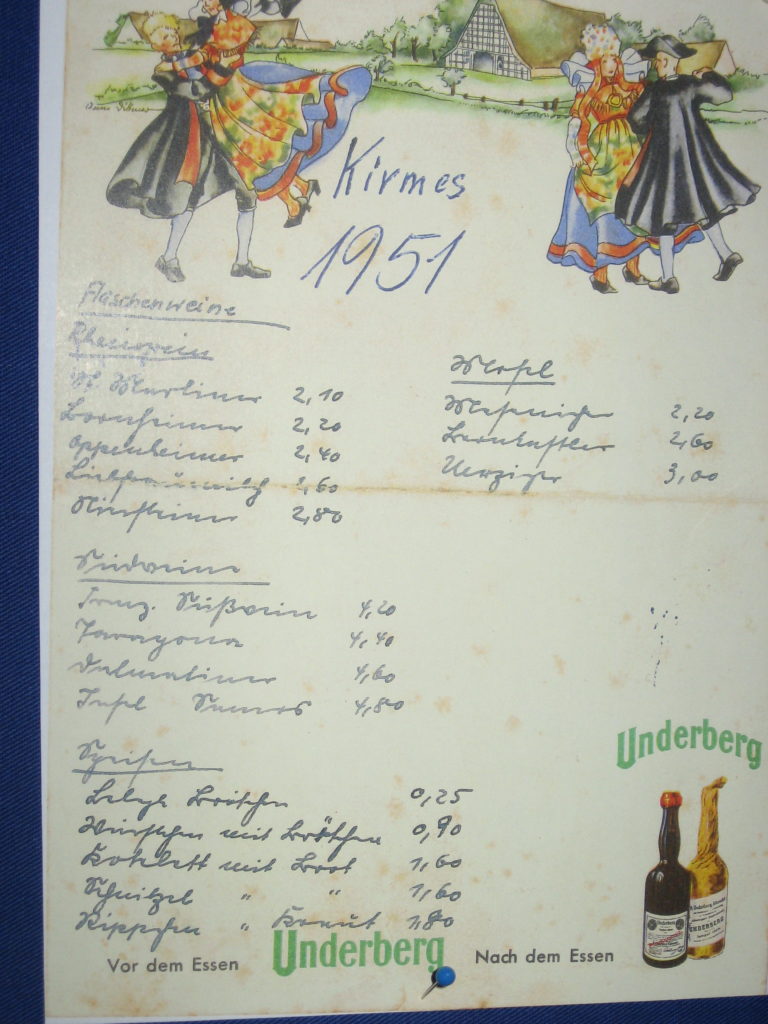 Kirmes
1951
Flaschenweine
Rheinwein
Bornheimer 2,20
Oppenheimer 2,40
Liebfraumilch 2,60
Niersteiner 2,80
Mosel
2,20
Bernkastler 2,60
Uerziger 3,00
Südweine
Franz. Süßwein 4,20
Taragona 4,40
Dalmatiner 4,60
Insel Samos 4,80
Speisen
Belegte Brötchen 0,25
Würstchen mit Brötchen 0,90
Kotelett mit Brot 1,60
Schnitzel " " 1,60
Rippchen " Kraut 1,80
Underberg
Vor dem Essen Underberg Nach dem Essen